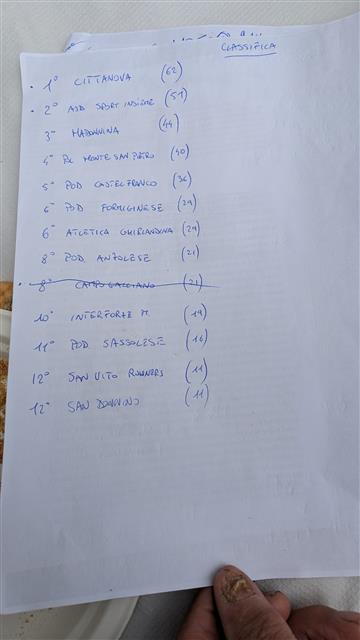 CLASSIFICA
1° CITTANOVA (62)
2° ASD SPORT INSIEME (51)
3° MADONNINA (44)
4° POL MONTE SAN PIETRO (40)
5° POD CASTELFRANCO (36)
6° POD FORMIGINESE (29)
6° ATLETICA GHIRLANDINA (29)
8° POD ANZOLESE (21)
8° CAMPOGALLIANO (21)
10° INTERFORZE M. (19)
11° POD SASSOLESE (16)
12° SAN VITO RUNNERS (11)
12° SAN DONNINO (11)